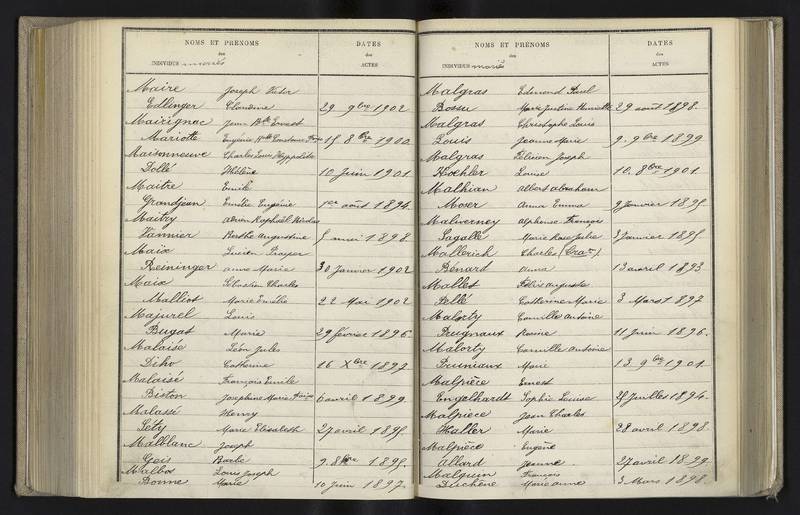 NOMS ET PRÉNOMS
des
INDIVIDUS mariés
DATES
des
ACTES
Maire Joseph Victor
Edlinger Claudine 29 9bre 1902
Mairignac Jean Bte Ernest
Mariotte Eugénie 15 8bre 1900
Maisonneuve Charles Louis Hyppolite
Dollé Hélène 10 juin 1901
Maitre Emile
Grandjean Emilie Eugénie 1er août 1894
Maitry Raphaël Nicolas
Vannier Berthe Augustine 5 mai 1898
Maix Lucien Prosper
Reininger Anne Marie 30 Janvier 1902
Maix Sébastien Charles
Malliot Marie Emélie 22 Mai 1902
Majurel Louis
Bugat Marie 29 février 1896
Malaisé Léon Jules
Diho Catherine 16 Xbre 1897
Malaisé François Emile
Biston Joséphine Marie 6 avril 1899
Malassé Henry
Séty Marie Elisabeth 27 avril 1895
Malblanc Joseph
Geis Barbe 9 8bre 1895
Malbos Louis Joseph
Bonne Marie 10 juin 1897
NOMS ET PRÉNOMS
des
INDIVIDUS mariés
DATES
des
ACTES
Malgras Edmond Paul
Bossu Marie Justine Henriette 29 août 1898
Malgras Christophe Louis
Louis Jeanne Marie 9 9bre 1899
Malgras Joseph
Koehler Louise 10 8bre 1901
Malhian Albert Abraham
Moser Anna Emma 9 Janvier 1895
Malverney Alphonse François
Lagalle Marie Rose Julie 3 Janvier 1895
Mallerich Charles
Bénard Anna 13 avril 1893
Mallet Félix Auguste
Pellé Catherine Marie 3 Mars 1897
Malorty Camille Antoine
Prugnaux Reine 11 Juin 1896
Malorty Camille Antoine
Pruniaux Marie 13 9bre 1901
Malpièce Ernest
Engelhardt Sophie Louise 25 Juillet 1894
Malpièce Jean Charles
Haller Marie 28 avril 1898
Malpièce Eugène
Allard Jeanne 27 avril 1899
Malquin François
Duchêne Marie Anne 3 Mars 1898